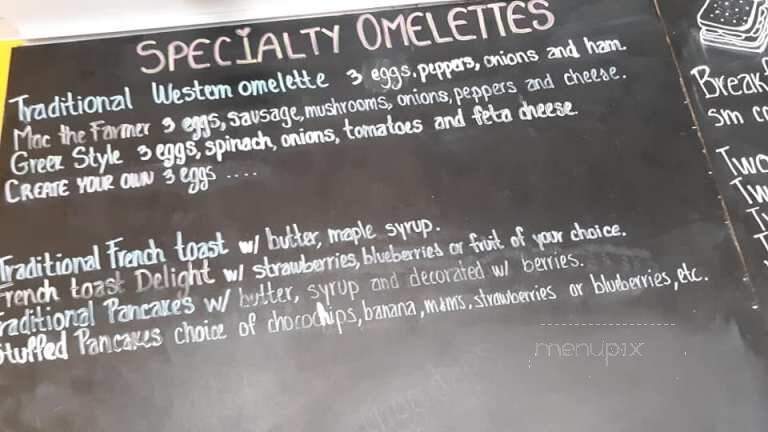 SPECIALTY OMELETTES
Traditional Western omelette 3 eggs, peppers, onions and ham.
Mac the Farmer 3 eggs, sausage, mushrooms, onions, peppers and cheese.
Greek Style 3 eggs, spinach, onions, tomatoes and feta cheese.
CREATE YOUR OWN 3 eggs ....
Traditional French toast w/ butter, maple syrup.
French toast Delight w/ strawberries, blueberries or fruit of your choice.
Traditional Pancakes w/ butter, syrup and decorated w/ berries.
Stuffed Pancakes choice of chocochips, banana, m&ms, strawberries or blueberries, etc.
Breakf
sm co
Two
Tw
menupix